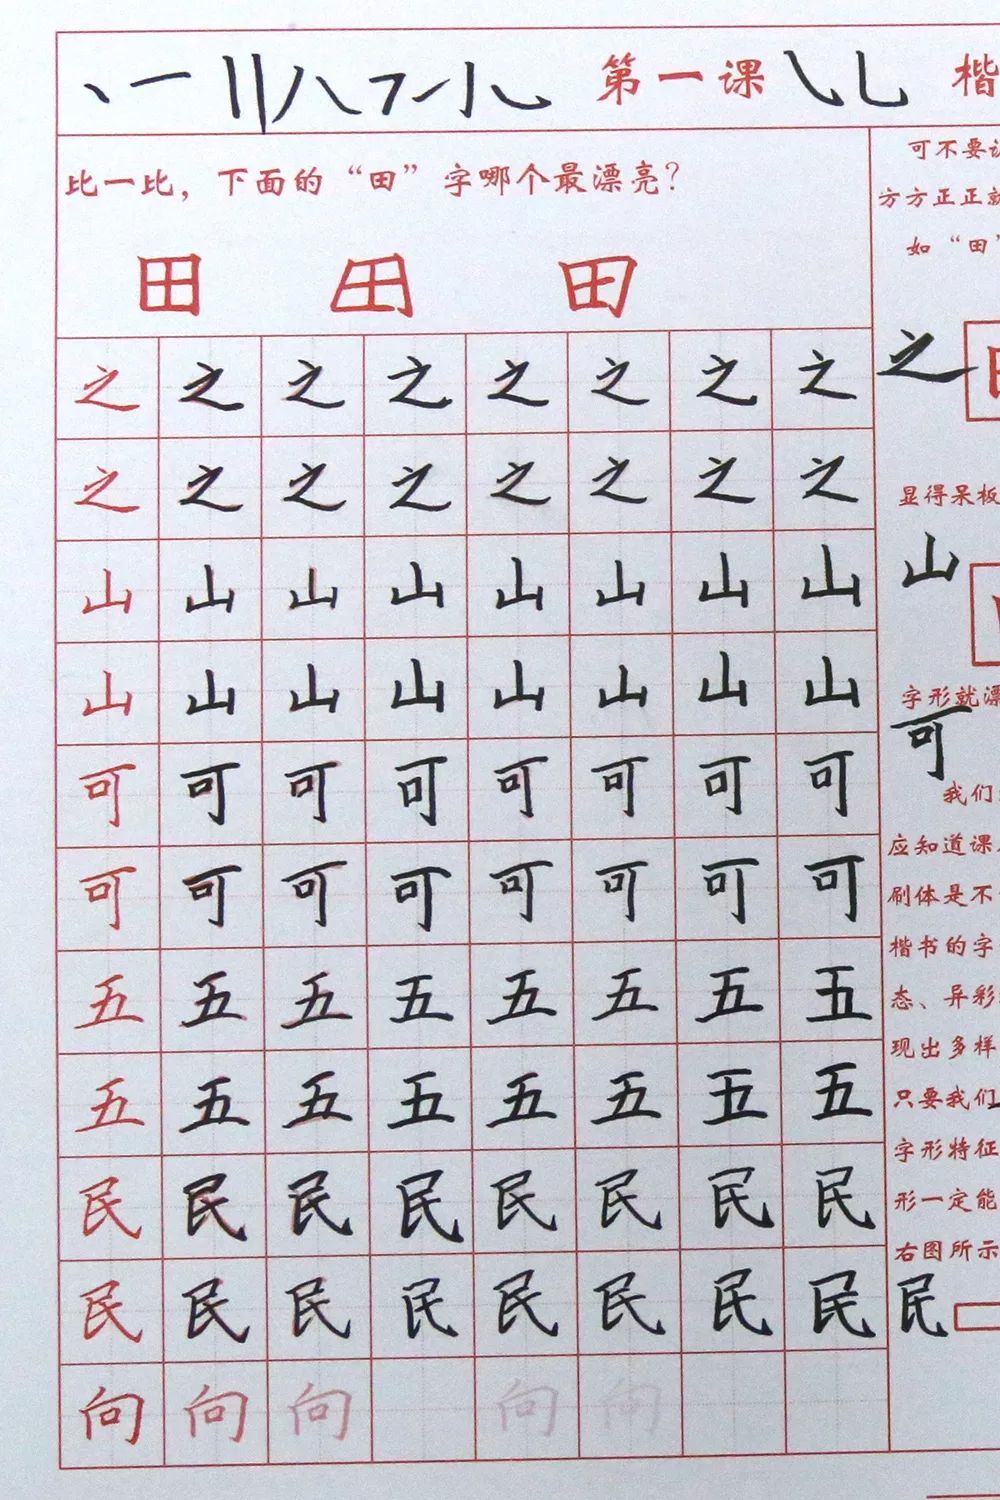 第一课 楷
比一比，下面的“田”字哪个最漂亮？
田 田 田
之 之 之 之 之 之 之 之
之 之 之 之 之 之 之 之
山 山 山 山 山 山 山 山
山 山 山 山 山 山 山 山
可 可 可 可 可 可 可 可
可 可 可 可 可 可 可 可
五 五 五 五 五 五 五 五
五 五 五 五 五 五 五 五
民 民 民 民 民 民 民 民
民 民 民 民 民 民 民 民
向 向 向 向 向
可不要
方方正正就
如“田”
之
显得呆板
山
字形就漂
可
我们
应知道课
刷体是不
楷书的字
态、异彩
现出多样
只要我们
字形特征
形一定能
右图所示
民